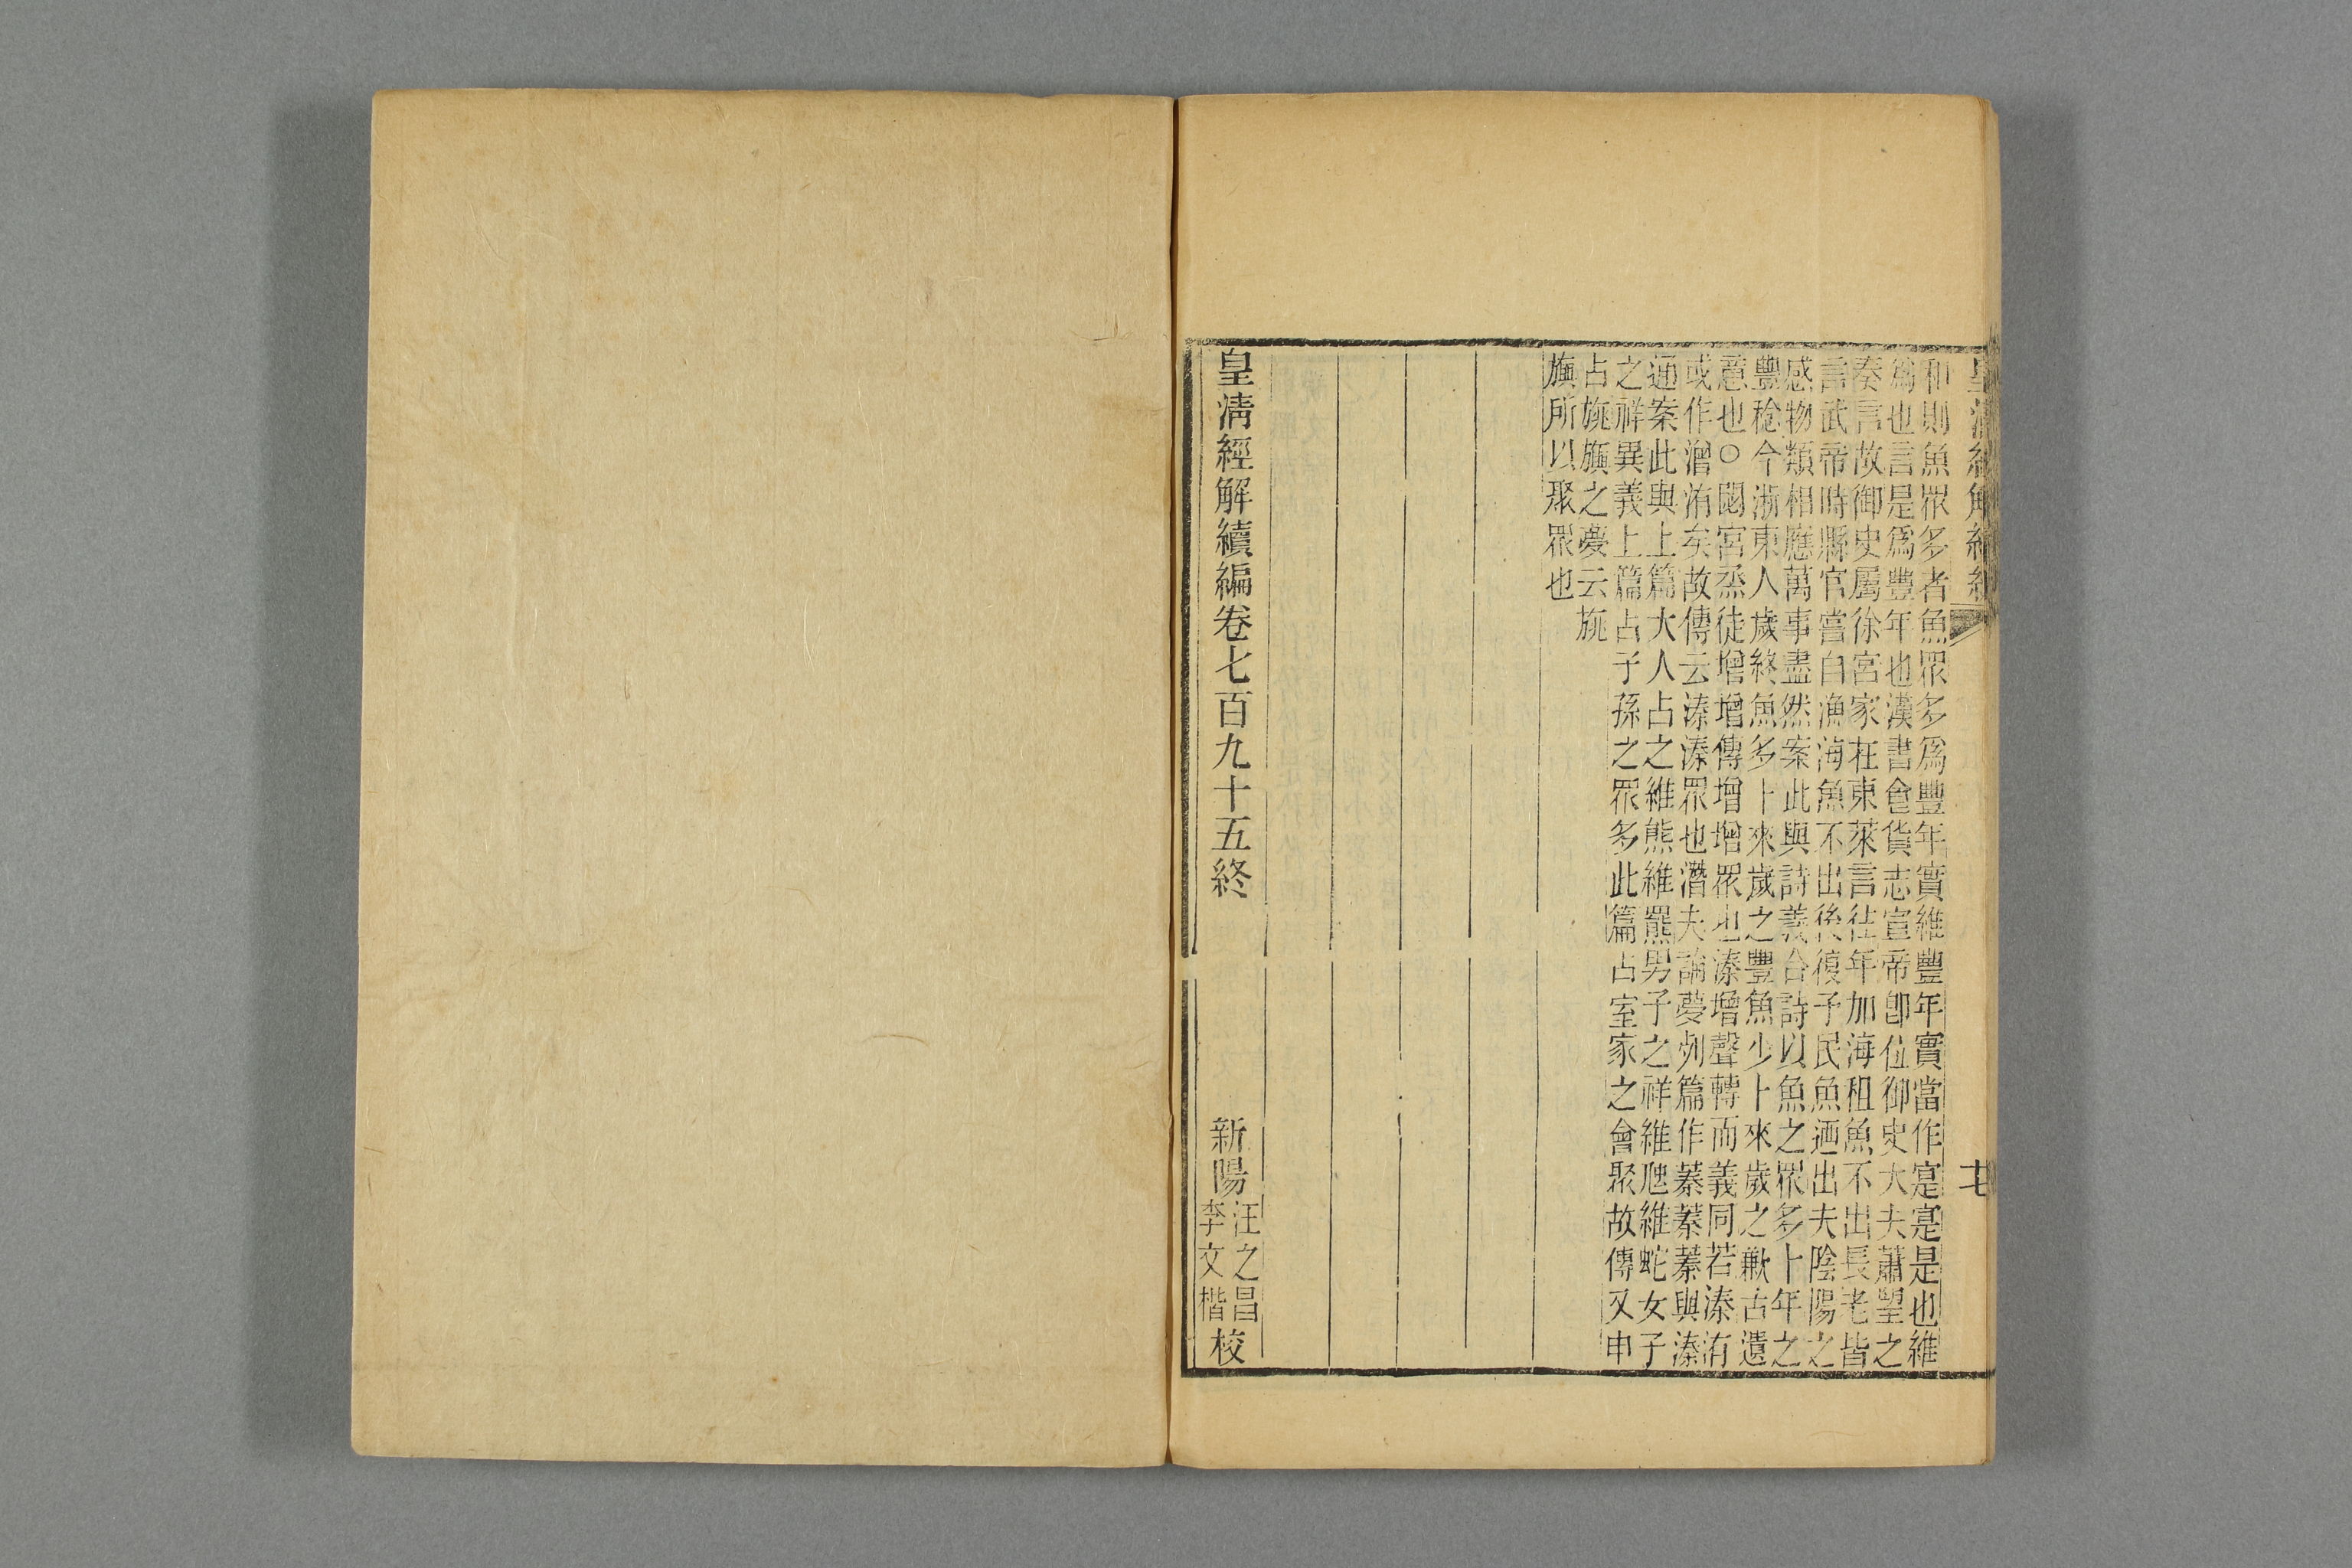 皇清經解續編
十七
和則魚眾多者魚眾多爲豐年實維豐年實當作寔寔是也維
爲也言是爲豐年也漢書食貨志宣帝卽位御史大夫蕭望之
奏言故御史屬徐宮家在東萊言往年加海租魚不出長老皆
言武帝時縣官嘗自漁海魚不出後復予民魚迺出夫陰陽之
感物類相應萬事盡然案此與詩義合詩以魚之眾多卜年之
豐稔今浙東人歲終魚多卜來歲之豐魚少卜來歲之歉古遺
意也○閟宮烝徒增增傳增增眾也溱增聲轉而義同若溱洧
或作潧洧矣故傳云溱溱眾也潛夫論夢列篇作蓁蓁蓁與溱
通案此與上篇大人占之維熊維羆男子之祥維虺維蛇女子
之祥異義上篇占子孫之眾多此篇占室家之會聚故傳又申
占旐旟之夢云旐
旟所以聚眾也
皇清經解續編卷七百九十五終
新陽
汪之昌
李文楷
校